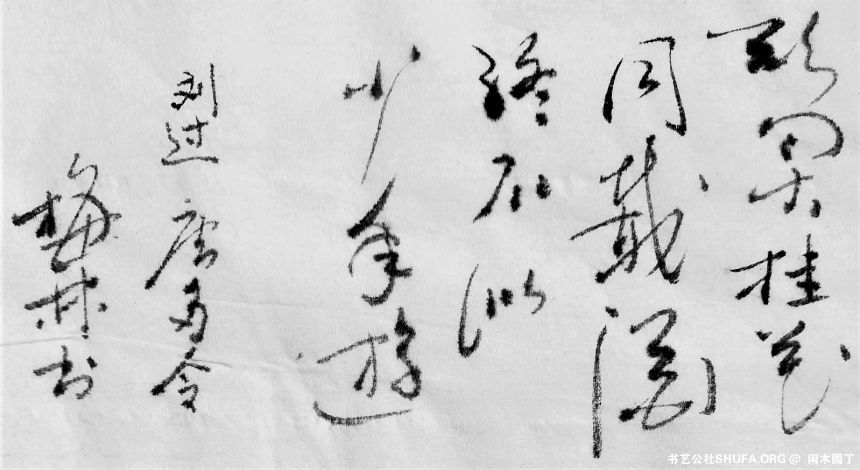 欲买桂花
同载酒
终不似
少年遊
刘过 唐多令
梅林书
书艺公社SHUFA.ORG @ 闲木园丁